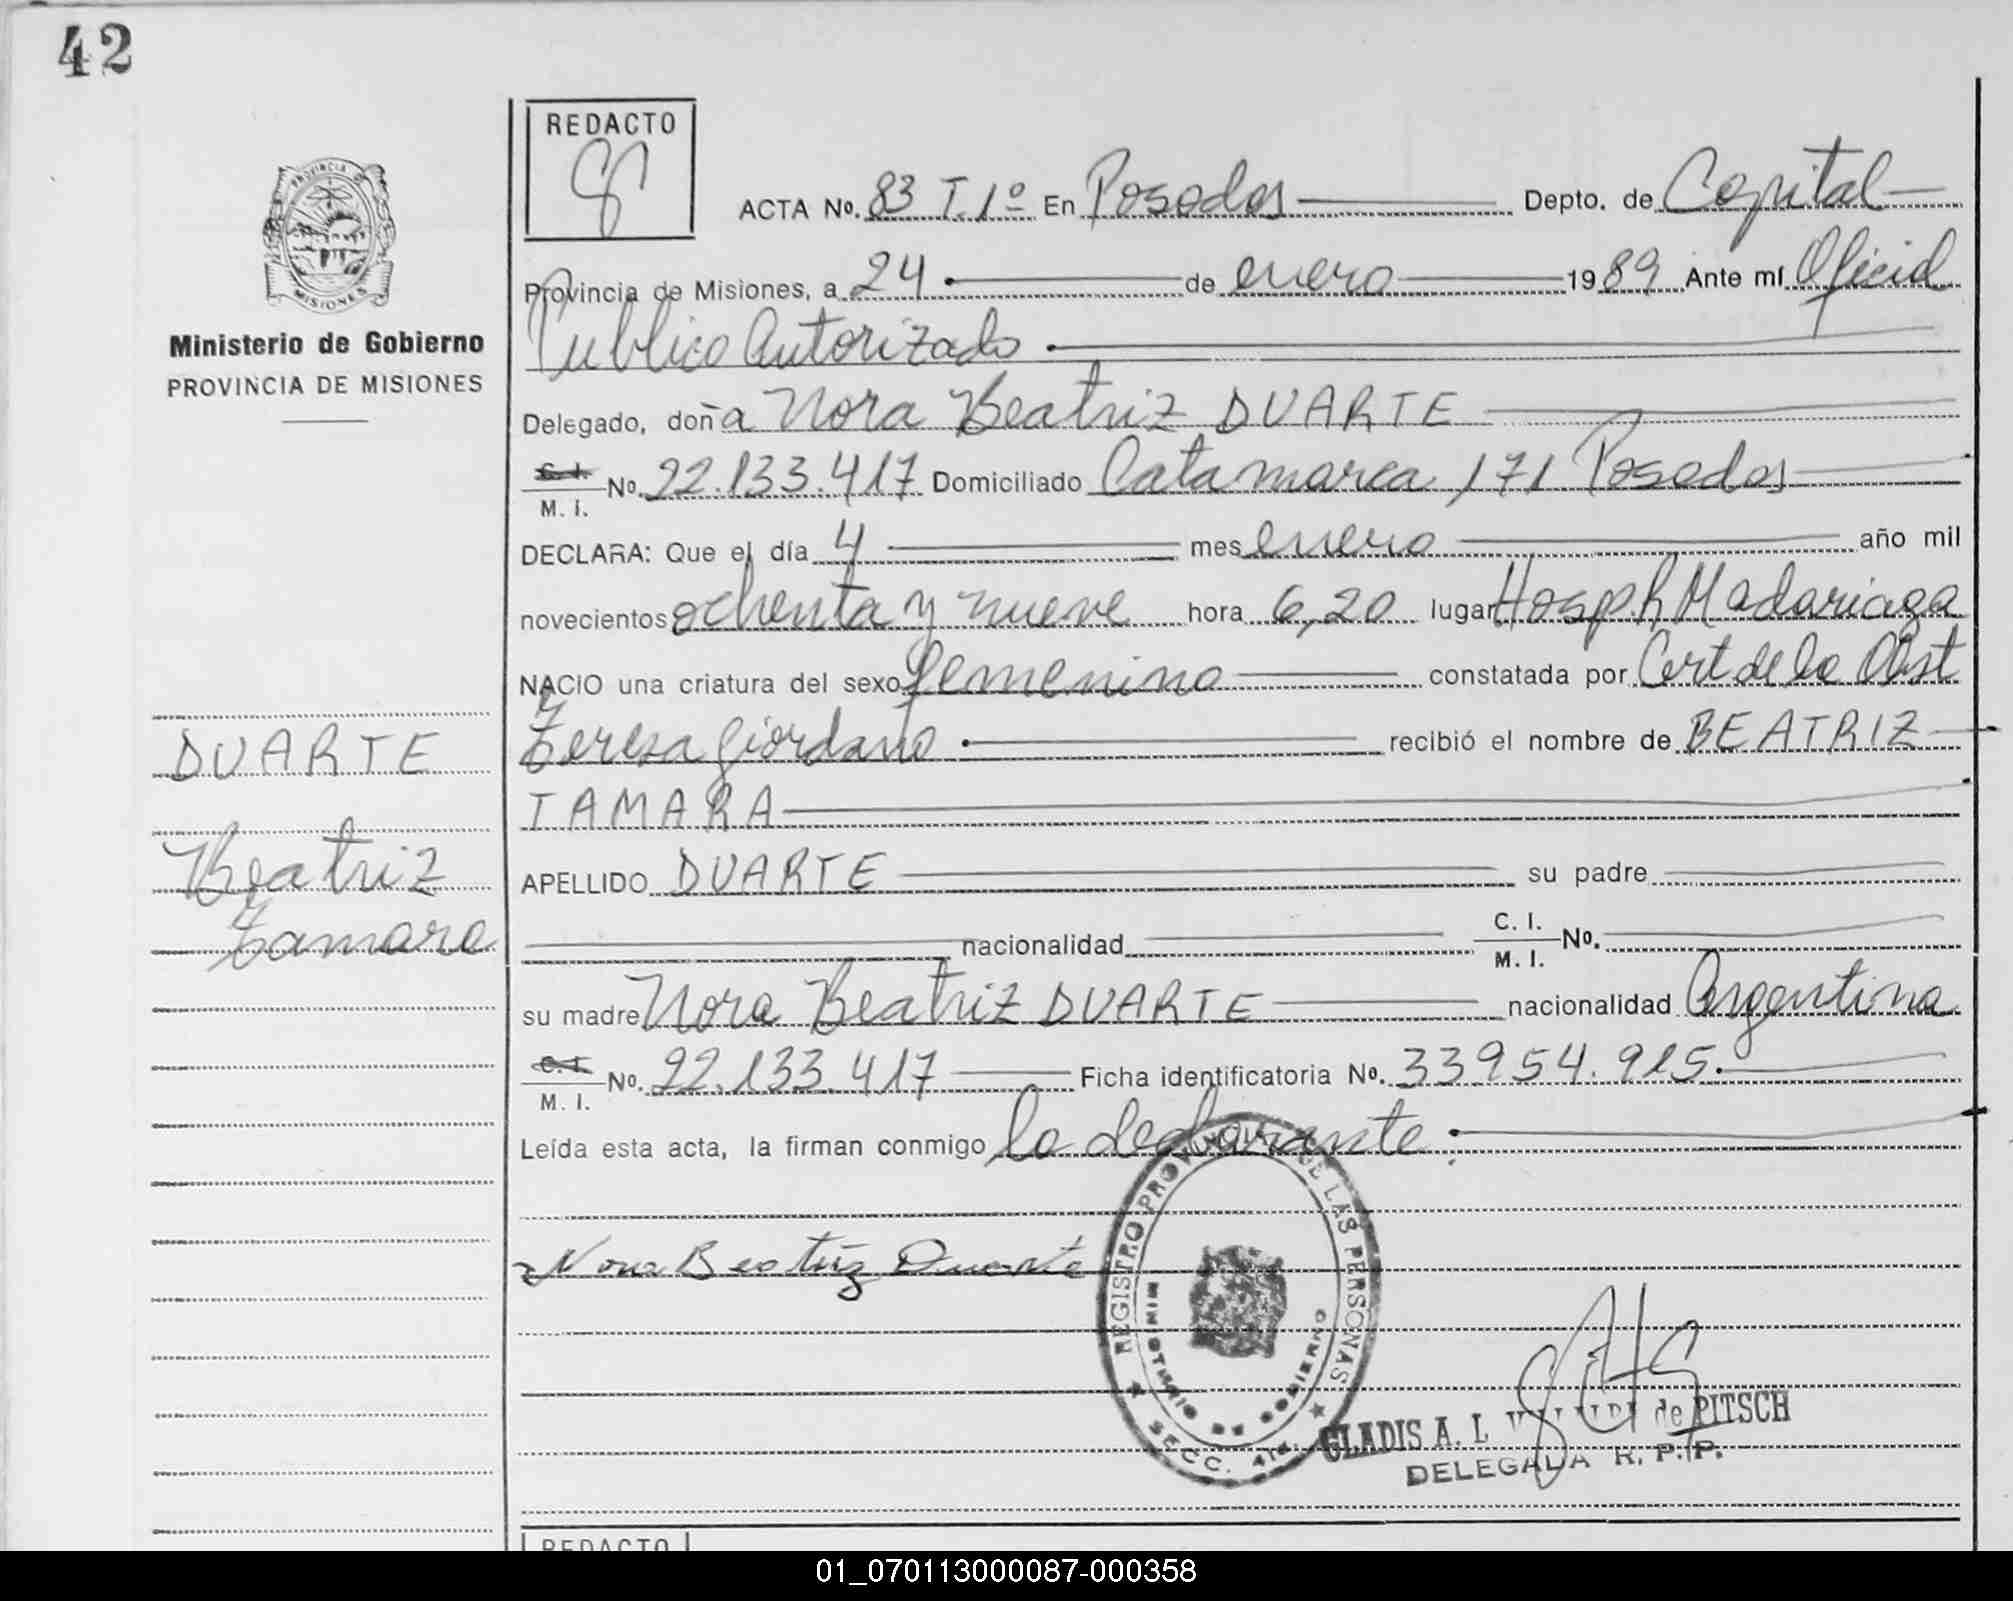 42
REDACTO
ACTA No. 83 T. 1º En Posadas Depto. de Capital
PROVINCIA DE MISIONES
Provincia de Misiones, a 24 de enero 1989 Ante mí Oficial
Publico Autorizado
Ministerio de Gobierno
PROVINCIA DE MISIONES
Delegado, doña Nora Beatriz DUARTE
C. I. M. I. No. 22.133.417 Domiciliado Catamarca 171 Posadas
DECLARA: Que el día 4 mes enero año mil
novecientos ochenta y nueve hora 6,20 lugar Hosp. R Madariaga
NACIO una criatura del sexo femenino constatada por Cert de la Obst
Teresa Giordano recibió el nombre de BEATRIZ
TAMARA
DUARTE
Beatriz
Tamara
APELLIDO DUARTE su padre
nacionalidad C. I. M. I. No.
su madre Nora Beatriz DUARTE nacionalidad Argentina
C. I. M. I. No. 22.133.417 Ficha identificatoria No. 33954.915.
Leída esta acta, la firman conmigo la declarante.
Nora Beatriz Duarte
REGISTRO PROVINCIAL DE LAS PERSONAS
MINISTERIO DE GOBIERNO
SECC. 4ta.
GLADIS A. L. de PITSCH
DELEGADA R. P. P.
REDACTO
01_070113000087-000358